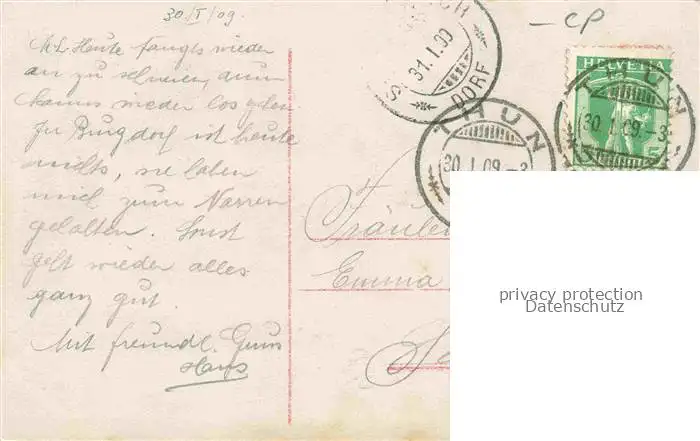 30/I/09.
M.L. Heute fangts wieder
an zu schneien, nun
kanns wieder los gehen.
In Burgdorf ist heute
nichts, sie haben
mich zum Narren
gehalten. Sonst
geht wieder alles
ganz gut.
Mit freundl. Gruss
Hans
CP
31.I.09
DORF
HELVETIA
5
THUN
30.I.09.-3
THUN
30.I.09.-3
Fräulein
Emma
privacy protection
Datenschutz